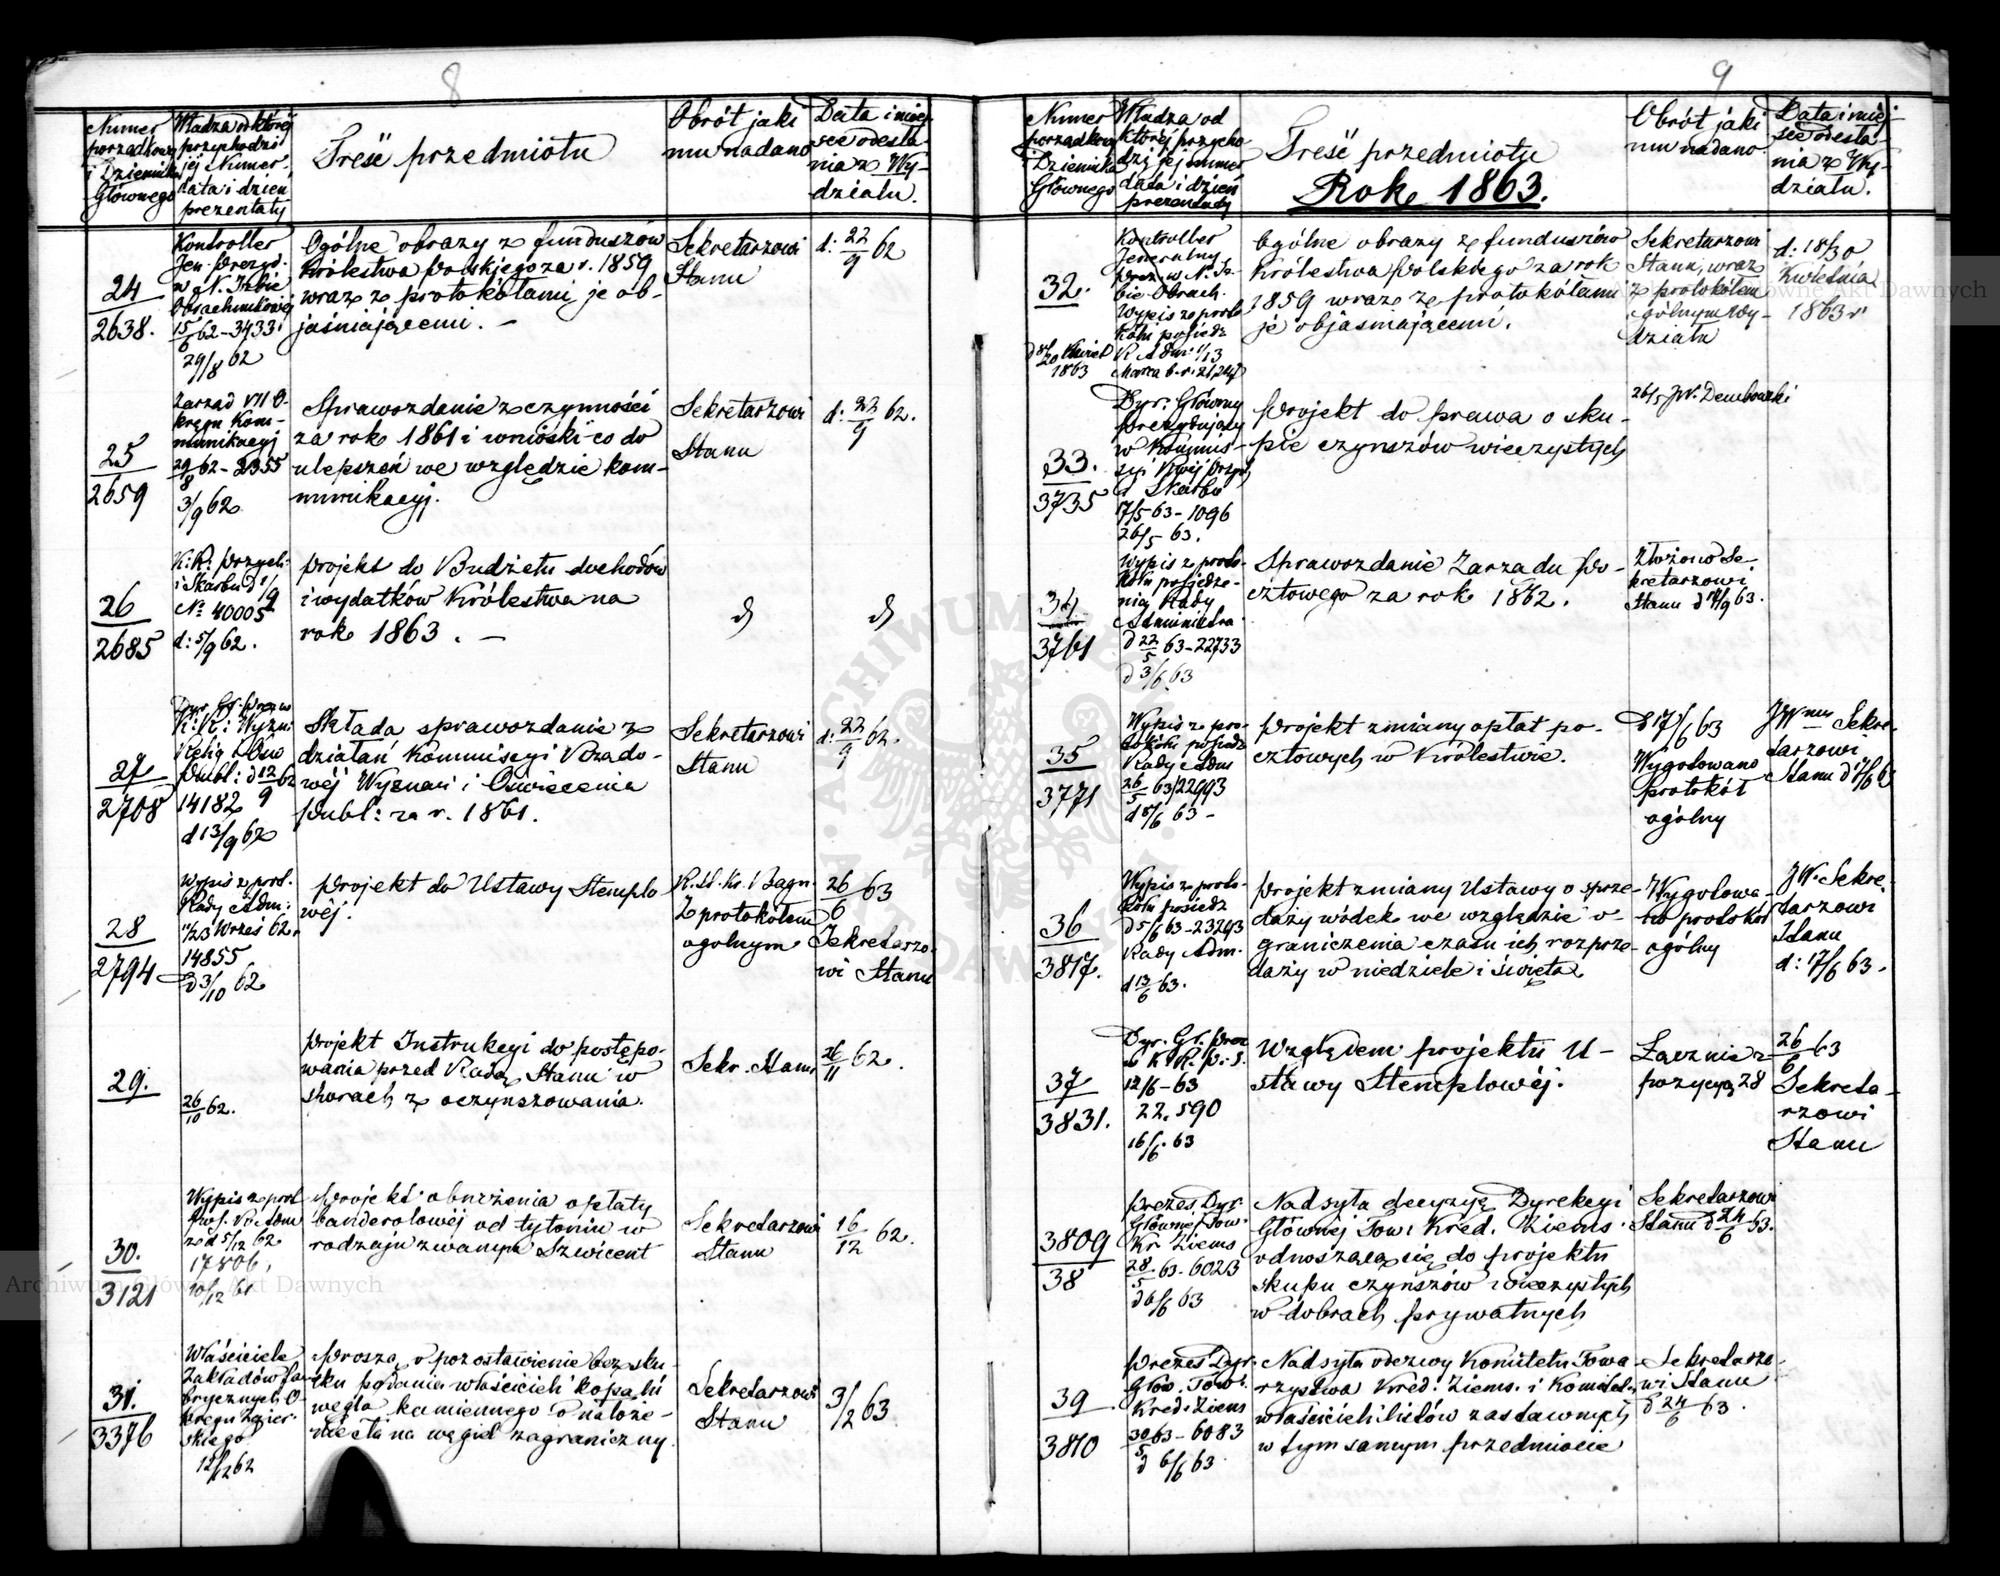 8
Numer
porządkowy
i Dziennika
Głównego
Władza od której
przychodzi
jéj Numer,
data i dzień
prezentaty
Treść przedmiotu
Obrót jaki
mu nadano
Data i miej-
sce odesła-
nia z Wy-
działu.
24
2638.
Kontroller
Jen: Prezyd.
w N. Izbie
Obrachunkowej
15/6 62-3433
29/8 62
Ogólne obrazy z funduszów
Królestwa Polskiego za r. 1859
wraz z protokółami je ob-
jaśniającemi. —
Sekretarzowi
Stanu
d: 22/9 62
25
2659
Zarząd VII O-
kręgu Kom-
munikacyj
29/8 62-2355
3/9 62
Sprawozdanie z czynności
za rok 1861 i wnioski co do
ulepszeń we względzie kom-
munikacyj.
Sekretarzowi
Stanu
d: 22/9 62.
26
2685
K: R: Przych:
i Skarbu d 1/9
No 40005
d: 5/9 62.
Projekt do Budżetu dochodów
i wydatków Królestwa na
rok 1863. —
d
d
27
2708
Dyr. Gł. Prez. w
K: R: Wyzn:
Relig i Ośw
Publ: d 12/9 62
14182
d 13/9 62
Składa sprawozdanie z
działań Kommissyi Rządo-
wéj Wyznań i Oświecenia
Publ: za r. 1861.
Sekretarzowi
Stanu
d: 22/9 62.
28
2794
Wypis z prot.
Rady Adm:
11/23 Wrześ 62 r
14855
d 3/10 62
Projekt do Ustawy Stemplo
wéj.
R. St. Kr. Bagn.
Z protokółem
ogólnym
26/6 63
Sekretarzo-
wi Stanu
29.
26/10 62.
Projekt Instrukcyi do postępo-
wania przed Radą Stanu w
sporach z oczynszowania.
Sekr. Stanu
26/11 62.
30.
3121
Wypis z prot
Pos. R. Adm
z d 5/12 62
17806,
10/12 61
Projekt obniżenia opłaty
banderolowéj od tytoniu w
rodzaju zwanym Szwicent
Sekretarzowi
Stanu
16/12 62.
31.
3376
Właściciele
Zakładów Fa-
brycznych O-
kręgu Zgier-
skiego
12/12 62
Proszą o pozostawienie bez sku-
tku podania właścicieli kopalń
węgla kamiennego o nałoże-
nie cła na węgiel zagraniczny.
Sekretarzowi
Stanu
3/2 63
9
Numer
porządkowy
i Dziennika
Głównego
Władza od
której przycho
dzi, jej numer
data i dzień
prezentaty
Treść przedmiotu
Rok 1863.
Obrót jaki
mu nadano
Data i miej-
sce odesła-
nia z Wy-
działu.
32.
d 8/20 Kwiet
1863
Kontroller
Generalny
Prez. w N. Iz-
bie Obrach.
Wypis z proto
kółu posiedz
R Adm: 1/13
Marca b. r.
Ogólne obrazy z funduszów
Królestwa Polskiego za rok
1859 wraz z protokółami
je objaśniającemi.
Sekretarzowi
Stanu, wraz
z protokółem
ogólnym Wy-
działu
d: 18/30
Kwietnia
1863 r
33.
3735
Dyr: Główny
Prezydujący
w Kommis-
syi Rząd. Przych
i Skarbu
17/5 63-1096
26/5 63.
Projekt do prawa o sku-
pie czynszów wieczystych
26/5 JW. Dembowski
34
3761
Wypis z proto-
kółu posiedze-
nia Rady
Administra.
d 22/5 63-22733
d 3/6 63
Sprawozdanie Zarządu Po-
cztowego za rok 1862.
Złożono Se-
kretarzowi
Stanu d 14/9 63.
35
3771
Wypis z pro-
tokółu posiedz
Rady Adm
26/5 63/22993
d 5/6 63 -
Projekt zmiany opłat po-
cztowych w Królestwie.
d 17/6 63
Wygotowano
protokół
ogólny
JWmu Sekre-
tarzowi
Stanu d 17/6 63
36
3817.
Wypis z proto-
kółu posiedz
d 5/6 63-23293
Rady Adm.
d 13/6 63.
Projekt zmiany Ustawy o sprze-
daży wódek we względzie o-
graniczenia czasu ich rozprze-
daży w niedziele i święta
Wygotowa-
no protokół
ogólny
JW. Sekre-
tarzowi
Stanu
d: 17/6 63.
37
3831.
Dyr. Gł. Prez
w K. R. P. i S.
12/6-63
22,590
16/6. 63
Względem projektu U-
stawy Stemplowéj.
Łącznie z
pozycyą 28
26/6 63
Sekreta-
rzowi
Stanu
3809
38
Prezes Dyr-
Głównej Tow-
Kr Ziems
28/5 63-6023
d 6/6 63
Nadsyła decyzyę Dyrekcyi
Głównéj Tow: Kred. Ziems.
odnoszącą się do projektu
skupu czynszów wieczystych
w dobrach prywatnych
Sekretarzowi
Stanu d 24/6 63.
39
3810
Prezes Dyr.
Głów. Tow.
Kred: Ziems
30/5 63-6083
d 6/6 63
Nadsyła odezwy Komitetu Towa-
rzystwa Kred: Ziems. i Komitet.
właścicieli listów zastawnych
w tym samym przedmiocie
Sekretarzo-
wi Stanu
d 24/6 63.
Archiwum Główne Akt Dawnych
Główne Akt Dawnych